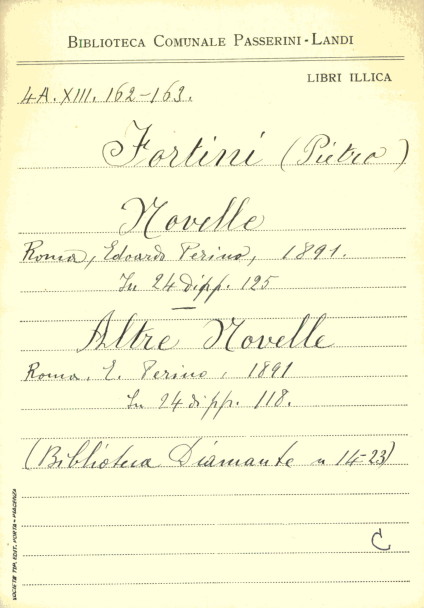 BIBLIOTECA COMUNALE PASSERINI-LANDI
LIBRI ILLICA
4A. XIII. 162-163.
Fortini (Pietro)
Novelle
Roma, Edoardo Perino, 1891.
In 24 di pp. 125
Altre Novelle
Roma. E. Perino, 1891
In 24 di pp. 118.
(Biblioteca Diamante n 14-23)
C
SOCIETÀ TIP. EDIT. PORTA - PIACENZA